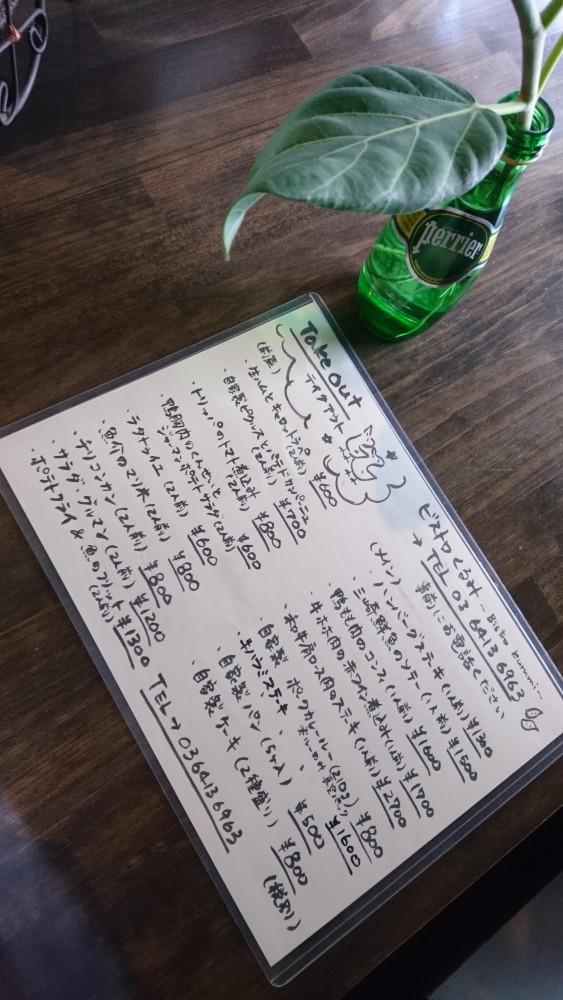 Perrier
Take out
テイクアウト
ビストロくるみ -Bistro Kurumi-
→ TEL 03 6413 6963
事前にお電話ください
(前菜)
・生ハムとキャロットラペ (2人前) ¥600
・自家製ピクルスとパテドカンパーニュ (2人前) ¥700
・トリッパのトマト煮込み (2人前) ¥800
・鴨胸肉のくんせいと ジャーマンポテトサラダ (2人前) ¥600
・ラタトゥイユ (2人前) ¥600
・魚介のマリネ (2人前) ¥800
・チリコンカン (2人前) ¥800
・サラダ・グルマン (2人前) ¥1200
・ポテトフライ & 魚のフリット (2人前) ¥1300
(メイン)
・ハンバーグステキ (1人前) ¥1300
・三崎鮮魚のソテー (1人前) ¥1500
・鴨モモ肉のコンフィ (1人前) ¥1600
・牛ホホ肉の赤ワイン煮込み (1人前) ¥1700
・和牛肩ロース肉のステキ (1人前) ¥2700
・自家製 ポークカレールー (210g) ¥800
※ルーのみ 真空パック
牛ハラミステーキ ¥1600
・自家製パン (5ヶ入) ¥500
・自家製ケーキ (2種盛り) ¥800
TEL → 03 6413 6963
(税別)